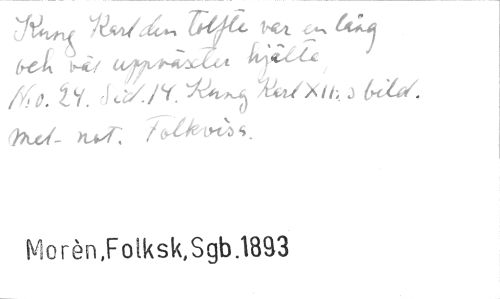 Kung Karl den Tolfte var en lång
och väl uppväxter hjälte,
N:o. 24. Sid. 14. Kung Karl XII:s bild.
Mel- not. Folkvisa.
Morèn,Folksk,Sgb.1893